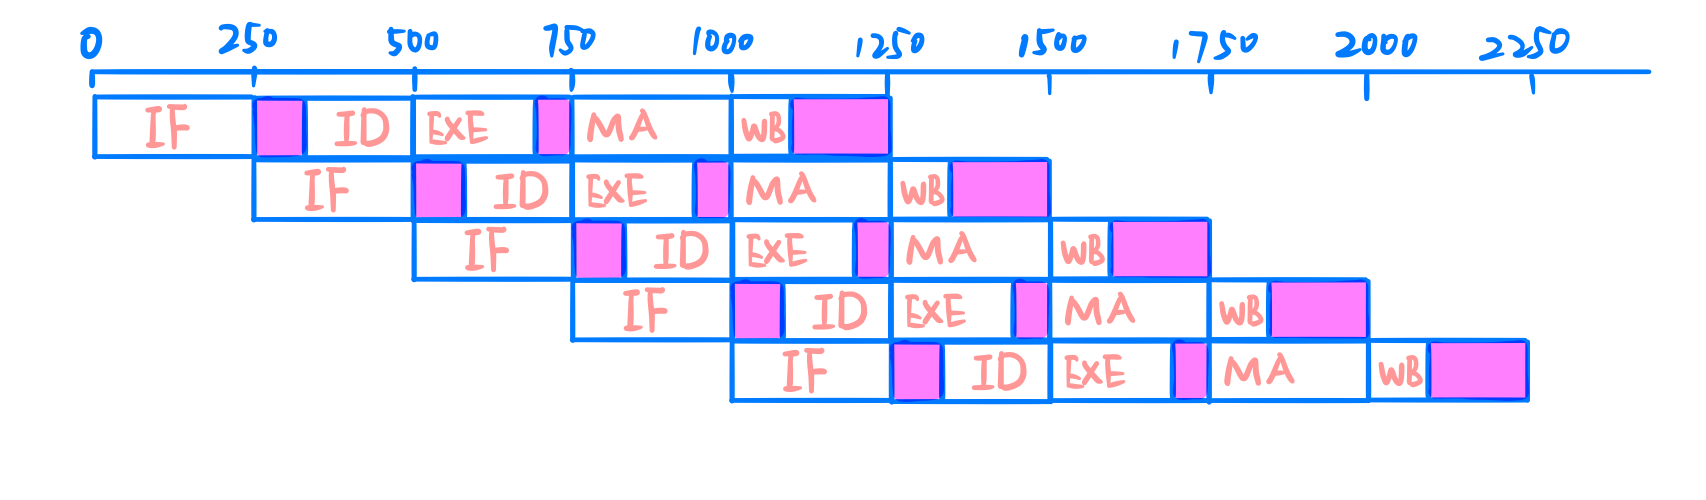 0 250 500 750 1000 1250 1500 1750 2000 2250
IF ID EXE MA WB
IF ID EXE MA WB
IF ID EXE MA WB
IF ID EXE MA WB
IF ID EXE MA WB